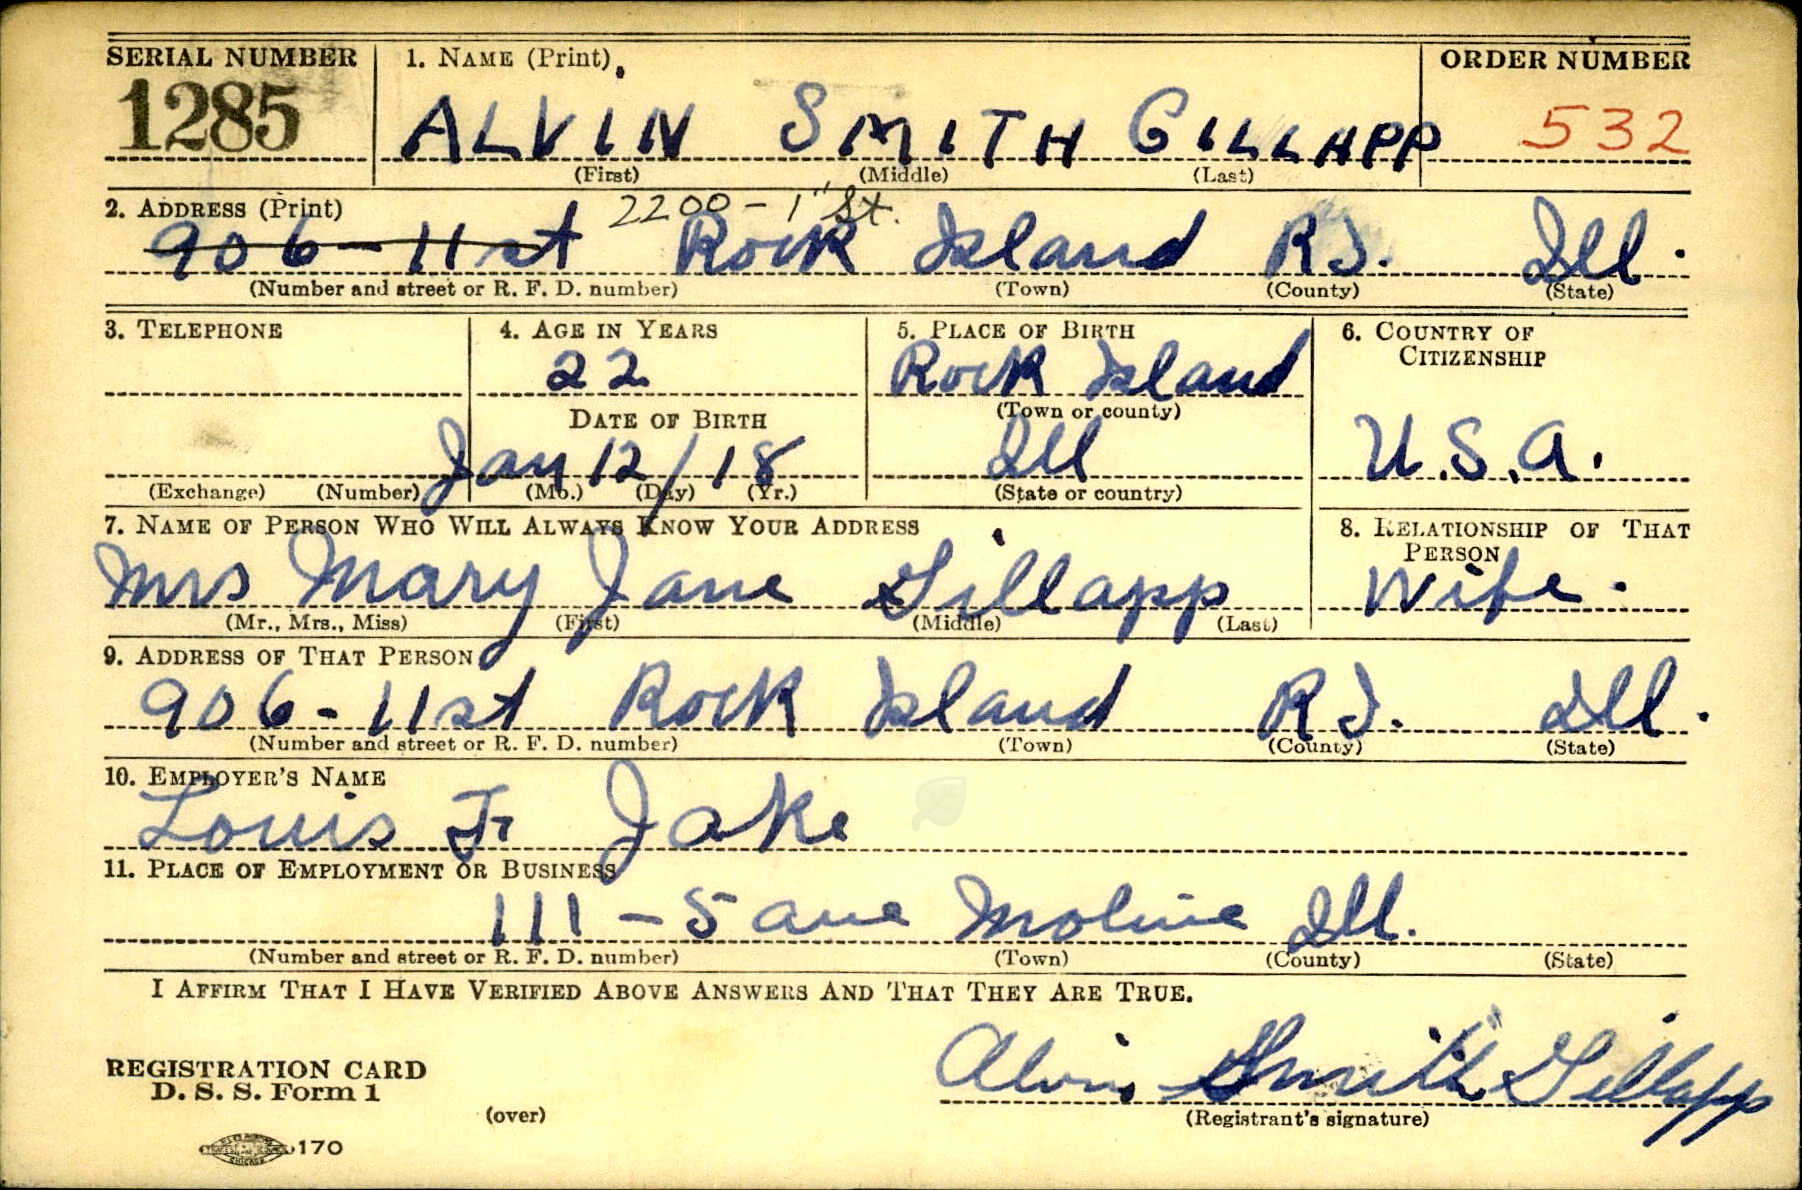 SERIAL NUMBER 1. NAME (Print) ORDER NUMBER
1285 ALVIN SMITH GILLAPP 532
(First) (Middle) (Last)
2. ADDRESS (Print) 2200 - 1" St.
906 - 11 st Rock Island R I. Ill.
(Number and street or R. F. D. number) (Town) (County) (State)
3. TELEPHONE 4. AGE IN YEARS 5. PLACE OF BIRTH 6. COUNTRY OF
CITIZENSHIP
22 Rock Island
(Town or county)
DATE OF BIRTH
Jan 12 / 18 Ill U.S.A.
(Exchange) (Number) (Mo.) (Day) (Yr.) (State or country)
7. NAME OF PERSON WHO WILL ALWAYS KNOW YOUR ADDRESS 8. RELATIONSHIP OF THAT
PERSON
Mrs Mary Jane Gillapp Wife.
(Mr., Mrs., Miss) (First) (Middle) (Last)
9. ADDRESS OF THAT PERSON
906 - 11 st Rock Island R I. Ill.
(Number and street or R. F. D. number) (Town) (County) (State)
10. EMPLOYER'S NAME
Louis Jake
11. PLACE OF EMPLOYMENT OR BUSINESS
111 - 5 ave Moline Ill.
(Number and street or R. F. D. number) (Town) (County) (State)
I AFFIRM THAT I HAVE VERIFIED ABOVE ANSWERS AND THAT THEY ARE TRUE.
Alvin Smith Gillapp
REGISTRATION CARD
D. S. S. Form 1
(over) (Registrant's signature)
170